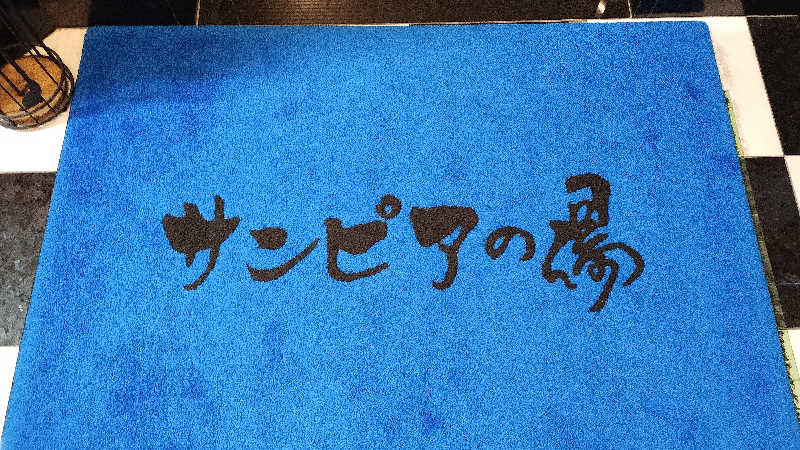 サンピアの湯